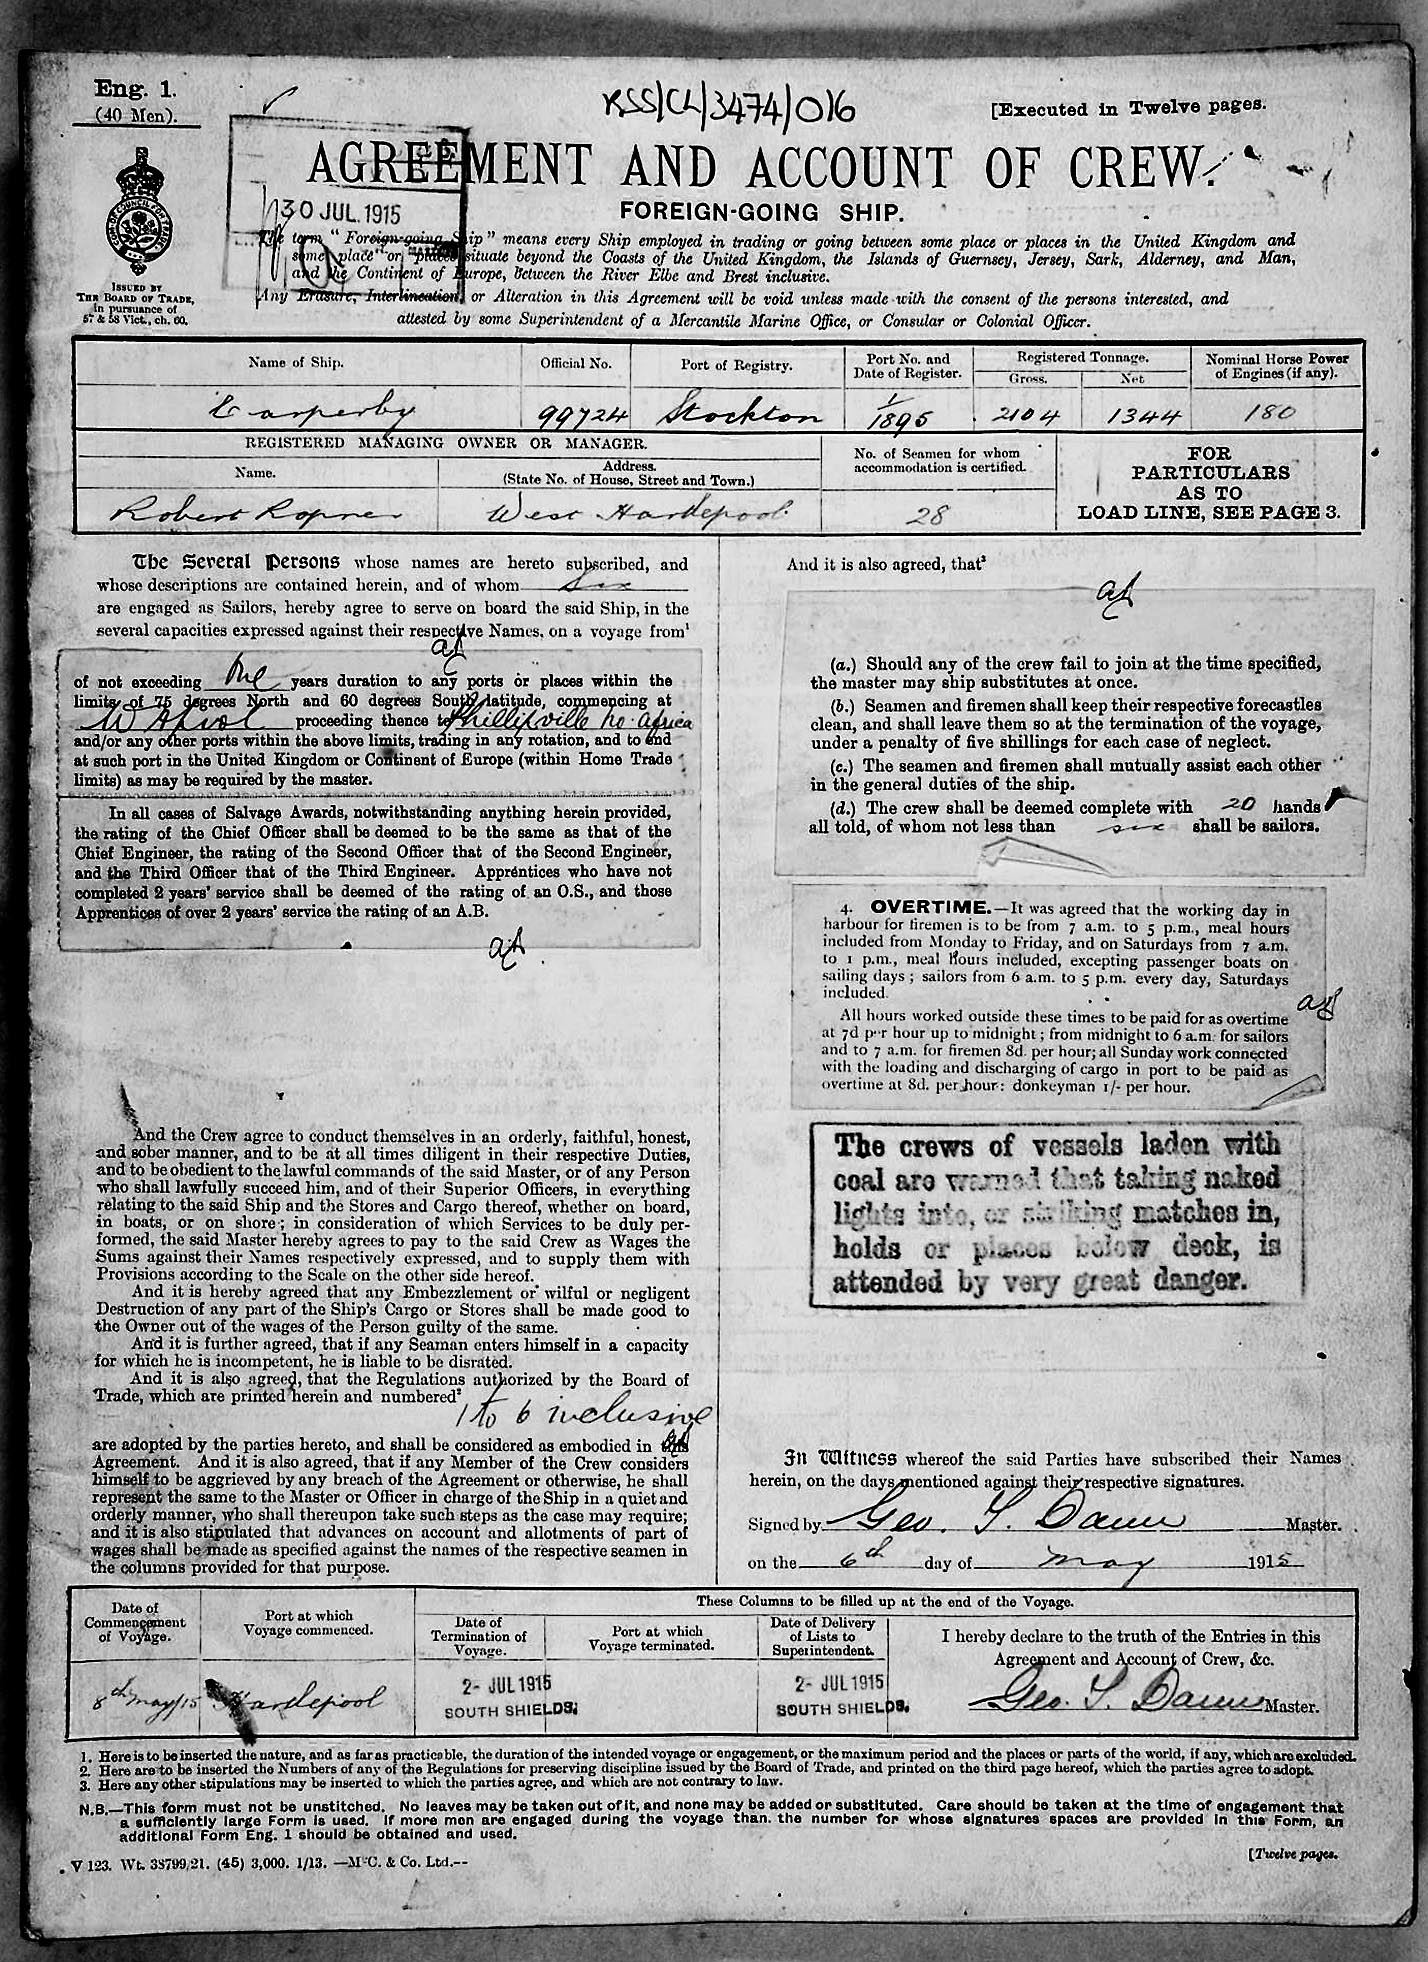 Eng. 1.
(40 Men).
RSS/CL/3474/016
[Executed in Twelve pages.
AGREEMENT AND ACCOUNT OF CREW.
30 JUL. 1915
FOREIGN-GOING SHIP.
ISSUED BY
THE BOARD OF TRADE,
in pursuance of
57 & 58 Vict., ch. 60.
The term "Foreign-going Ship" means every Ship employed in trading or going between some place or places in the United Kingdom and
some place or places situate beyond the Coasts of the United Kingdom, the Islands of Guernsey, Jersey, Sark, Alderney, and Man,
and the Continent of Europe, between the River Elbe and Brest inclusive.
Any Erasure, Interlineation, or Alteration in this Agreement will be void unless made with the consent of the persons interested, and
attested by some Superintendent of a Mercantile Marine Office, or Consular or Colonial Officer.
Name of Ship.
Official No.
Port of Registry.
Port No. and
Date of Register.
Registered Tonnage.
Gross.
Net
Nominal Horse Power
of Engines (if any).
Carperby
99724
Stockton
1/1895
2104
1344
180
REGISTERED MANAGING OWNER OR MANAGER.
Name.
Address.
(State No. of House, Street and Town.)
No. of Seamen for whom
accommodation is certified.
FOR
PARTICULARS
AS TO
LOAD LINE, SEE PAGE 3.
Robert Ropner
West Hartlepool.
28
The Several Persons whose names are hereto subscribed, and
whose descriptions are contained herein, and of whom six
are engaged as Sailors, hereby agree to serve on board the said Ship, in the
several capacities expressed against their respective Names, on a voyage from¹
of not exceeding One years duration to any ports or places within the
limits of 75 degrees North and 60 degrees South latitude, commencing at
W Hpool proceeding thence to Phillipville No. Africa
and/or any other ports within the above limits, trading in any rotation, and to end
at such port in the United Kingdom or Continent of Europe (within Home Trade
limits) as may be required by the master.
In all cases of Salvage Awards, notwithstanding anything herein provided,
the rating of the Chief Officer shall be deemed to be the same as that of the
Chief Engineer, the rating of the Second Officer that of the Second Engineer,
and the Third Officer that of the Third Engineer. Apprentices who have not
completed 2 years' service shall be deemed of the rating of an O.S., and those
Apprentices of over 2 years' service the rating of an A.B.
And the Crew agree to conduct themselves in an orderly, faithful, honest,
and sober manner, and to be at all times diligent in their respective Duties,
and to be obedient to the lawful commands of the said Master, or of any Person
who shall lawfully succeed him, and of their Superior Officers, in everything
relating to the said Ship and the Stores and Cargo thereof, whether on board,
in boats, or on shore; in consideration of which Services to be duly per-
formed, the said Master hereby agrees to pay to the said Crew as Wages the
Sums against their Names respectively expressed, and to supply them with
Provisions according to the Scale on the other side hereof.
And it is hereby agreed that any Embezzlement or wilful or negligent
Destruction of any part of the Ship's Cargo or Stores shall be made good to
the Owner out of the wages of the Person guilty of the same.
And it is further agreed, that if any Seaman enters himself in a capacity
for which he is incompetent, he is liable to be disrated.
And it is also agreed, that the Regulations authorized by the Board of
Trade, which are printed herein and numbered²
1 to 6 inclusive
are adopted by the parties hereto, and shall be considered as embodied in this
Agreement. And it is also agreed, that if any Member of the Crew considers
himself to be aggrieved by any breach of the Agreement or otherwise, he shall
represent the same to the Master or Officer in charge of the Ship in a quiet and
orderly manner, who shall thereupon take such steps as the case may require;
and it is also stipulated that advances on account and allotments of part of
wages shall be made as specified against the names of the respective seamen in
the columns provided for that purpose.
And it is also agreed, that³
(a.) Should any of the crew fail to join at the time specified,
the master may ship substitutes at once.
(b.) Seamen and firemen shall keep their respective forecastles
clean, and shall leave them so at the termination of the voyage,
under a penalty of five shillings for each case of neglect.
(c.) The seamen and firemen shall mutually assist each other
in the general duties of the ship.
(d.) The crew shall be deemed complete with 20 hands
all told, of whom not less than six shall be sailors.
4. OVERTIME.—It was agreed that the working day in
harbour for firemen is to be from 7 a.m. to 5 p.m., meal hours
included from Monday to Friday, and on Saturdays from 7 a.m.
to 1 p.m., meal hours included, excepting passenger boats on
sailing days; sailors from 6 a.m. to 5 p.m. every day, Saturdays
included.
All hours worked outside these times to be paid for as overtime
at 7d per hour up to midnight; from midnight to 6 a.m. for sailors
and to 7 a.m. for firemen 8d. per hour; all Sunday work connected
with the loading and discharging of cargo in port to be paid as
overtime at 8d. per hour: donkeyman 1/- per hour.
The crews of vessels laden with
coal are warned that taking naked
lights into, or striking matches in,
holds or places below deck, is
attended by very great danger.
In Witness whereof the said Parties have subscribed their Names
herein, on the days mentioned against their respective signatures.
Signed by Geo. S. Dann Master.
on the 6th day of May 1915
Date of
Commencement
of Voyage.
Port at which
Voyage commenced.
These Columns to be filled up at the end of the Voyage.
Date of
Termination of
Voyage.
Port at which
Voyage terminated.
Date of Delivery
of Lists to
Superintendent.
I hereby declare to the truth of the Entries in this
Agreement and Account of Crew, &c.
8th May/15
Hartlepool
2- JUL 1915
SOUTH SHIELDS.
2- JUL 1915
SOUTH SHIELDS.
Geo. S. Dann Master.
1. Here is to be inserted the nature, and as far as practicable, the duration of the intended voyage or engagement, or the maximum period and the places or parts of the world, if any, which are excluded.
2. Here are to be inserted the Numbers of any of the Regulations for preserving discipline issued by the Board of Trade, and printed on the third page hereof, which the parties agree to adopt.
3. Here any other stipulations may be inserted to which the parties agree, and which are not contrary to law.
N.B.—This form must not be unstitched. No leaves may be taken out of it, and none may be added or substituted. Care should be taken at the time of engagement that
a sufficiently large Form is used. If more men are engaged during the voyage than the number for whose signatures spaces are provided in this Form, an
additional Form Eng. 1 should be obtained and used.
V 123. Wt. 38799/21. (45) 3,000. 1/13. —McC. & Co. Ltd.--
[Twelve pages.